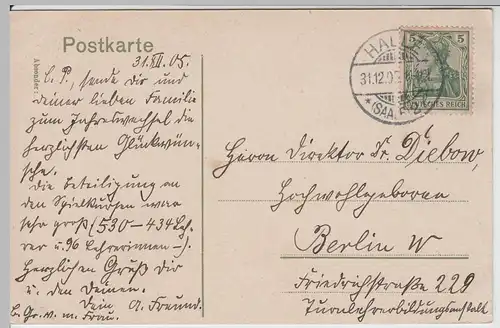 Postkarte
Absender:
31.XII.05.
L. P., sende dir und
deiner lieben Familie
zum Jahreswechsel die
herzlichsten Glückwün-
sche.
Die Beteiligung an
den Spielkursen war
sehr groß (530 - 434 Leh-
rer u. 96 Lehrerinnen -).
Herzlichen Gruß dir
u. den Deinen.
Dein A. Freund.
b. Gr. v. m. Frau.
5 5
DEUTSCHES REICH
HALLE
31.12.05
*(SAALE)2
Herrn Direktor Dr. Diebow,
Hochwohlgeboren
Berlin W
Friedrichstraße 229
Turnlehrerbildungsanstalt